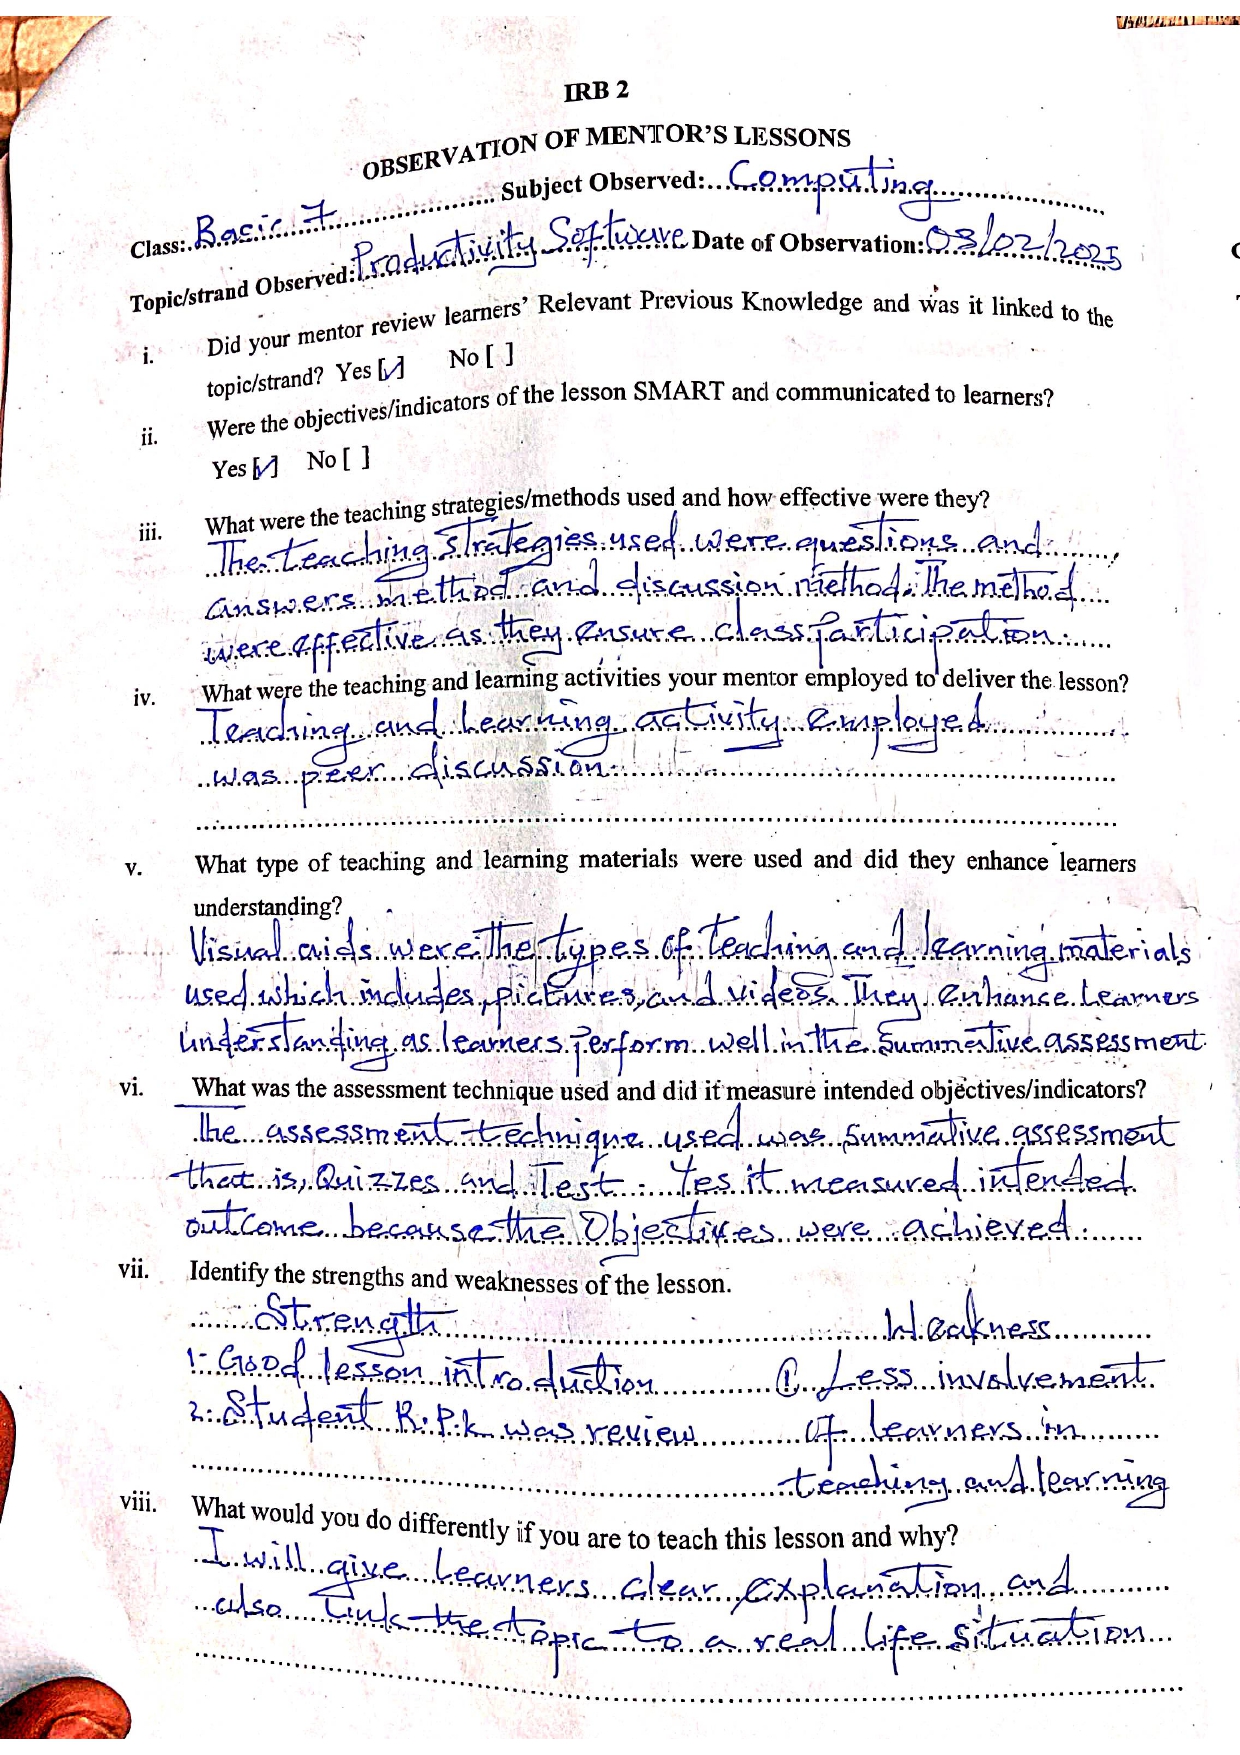 IRB 2
OBSERVATION OF MENTOR'S LESSONS
Class: Basic 7 Subject Observed: Computing
Topic/strand Observed: Productivity Software Date of Observation: 03/02/2025
i. Did your mentor review learners' Relevant Previous Knowledge and was it linked to the
topic/strand? Yes [✓] No [ ]
ii. Were the objectives/indicators of the lesson SMART and communicated to learners?
Yes [✓] No [ ]
iii. What were the teaching strategies/methods used and how effective were they?
The teaching strategies used were questions and
answers method and discussion method. The method
were effective as they ensure class participation.
iv. What were the teaching and learning activities your mentor employed to deliver the lesson?
Teaching and Learning activity employed
was peer discussion.
v. What type of teaching and learning materials were used and did they enhance learners
understanding?
Visual aids were the types of teaching and learning materials
used which includes, pictures, and videos. They enhance Learners
understanding as learners perform well in the Summative assessment
vi. What was the assessment technique used and did it measure intended objectives/indicators?
The assessment technique used was Summative assessment
that is, Quizzes and Test. Yes it measured intended
outcome because the Objectives were achieved.
vii. Identify the strengths and weaknesses of the lesson.
Strength Weakness
1. Good lesson introduction ① Less involvement
2. Student R.P.k was review of learners in
teaching and learning
viii. What would you do differently if you are to teach this lesson and why?
I will give Learners clear explanation and
also Link the topic to a real life situation